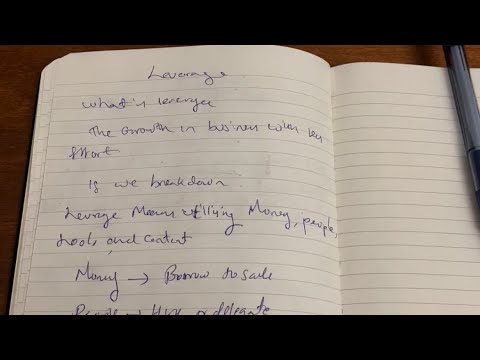 Leverage
What is leverage
The Growth in business when less
effort
If we breakdown
Leverage Means utilizing Money, people,
tools and content
Money → Borrow to scale
People → Hire or delegate